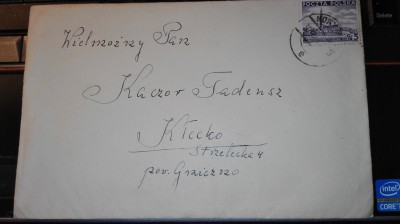 POCZTA POLSKA
Wielmożny Pan
Kaczor Tadeusz
Kłecko
Strzelecka 4
pow. Gniezno
Delete
intel
CORE